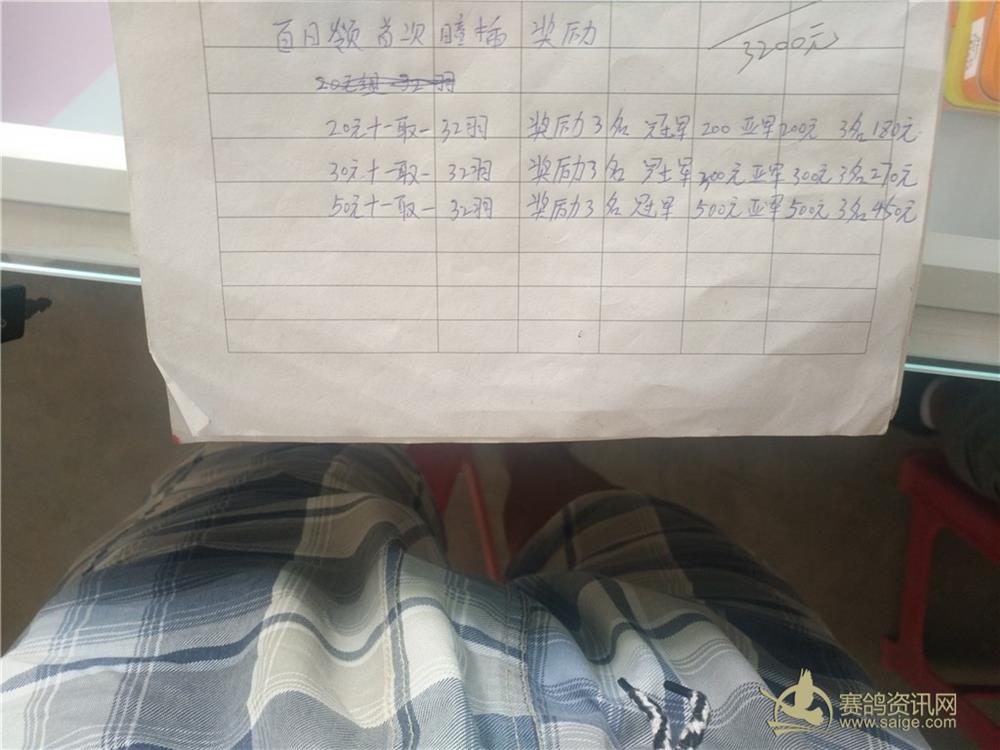 百日领首次瞳插 奖励
3200元
20元组 32羽
20元十取一 32羽 奖励3名 冠军200 亚军200元 3名180元
30元十取一 32羽 奖励3名 冠军300元 亚军300元 3名270元
50元十取一 32羽 奖励3名 冠军500元 亚军500元 3名450元
赛鸽资讯网
www.saige.com